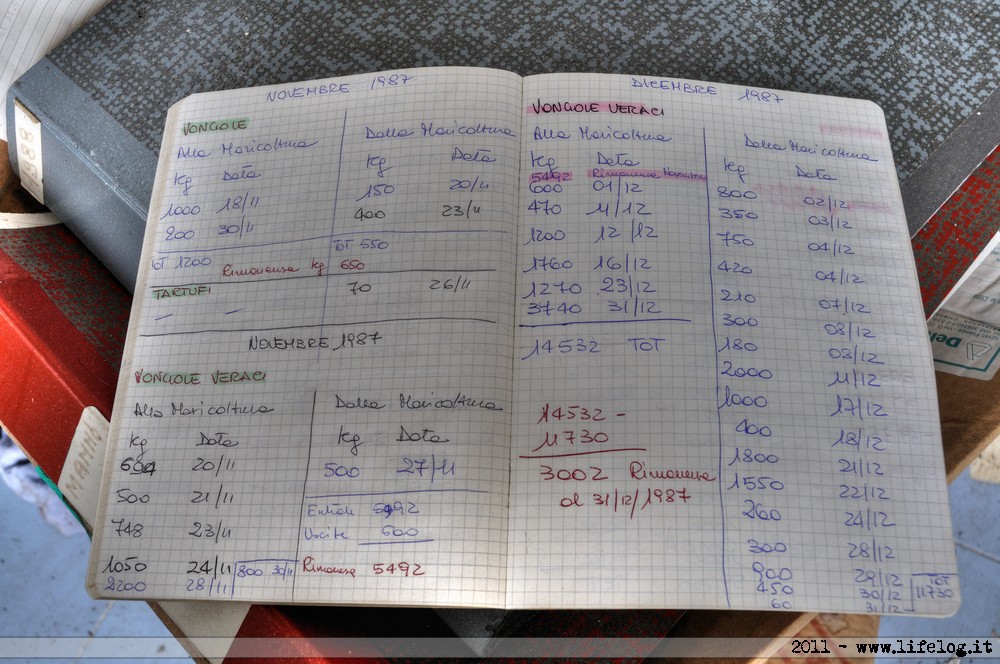 NOVEMBRE 1987
VONGOLE
Alla Maricoltura
Kg Data
1000 18/11
200 30/11
TOT 1200
Dalla Maricoltura
Kg Data
150 20/11
400 23/11
TOT 550
Rimanenza Kg 650
TARTUFI
— —
70 26/11
NOVEMBRE 1987
VONGOLE VERACI
Alla Maricoltura
Kg Data
694 20/11
500 21/11
748 23/11
1050 24/11
2200 28/11
800 30/11
Dalla Maricoltura
Kg Data
500 27/11
Entrate 5992
Uscite 500
Rimanenza 5492
DICEMBRE 1987
VONGOLE VERACI
Alla Maricoltura
Kg Data
5492 Rimanenza Novembre
600 01/12
470 11/12
1200 12/12
1760 16/12
1270 23/12
3740 31/12
14532 TOT
14532 -
11730
3002 Rimanenza
al 31/12/1987
Dalla Maricoltura
Kg Data
800 02/12
350 03/12
750 04/12
420 04/12
210 07/12
300 08/12
180 09/12
2000 11/12
1000 17/12
400 18/12
1800 21/12
1550 22/12
260 24/12
300 28/12
900 29/12
450 30/12
60 31/12
TOT
11730
MAMMA
2011 - www.lifelog.it